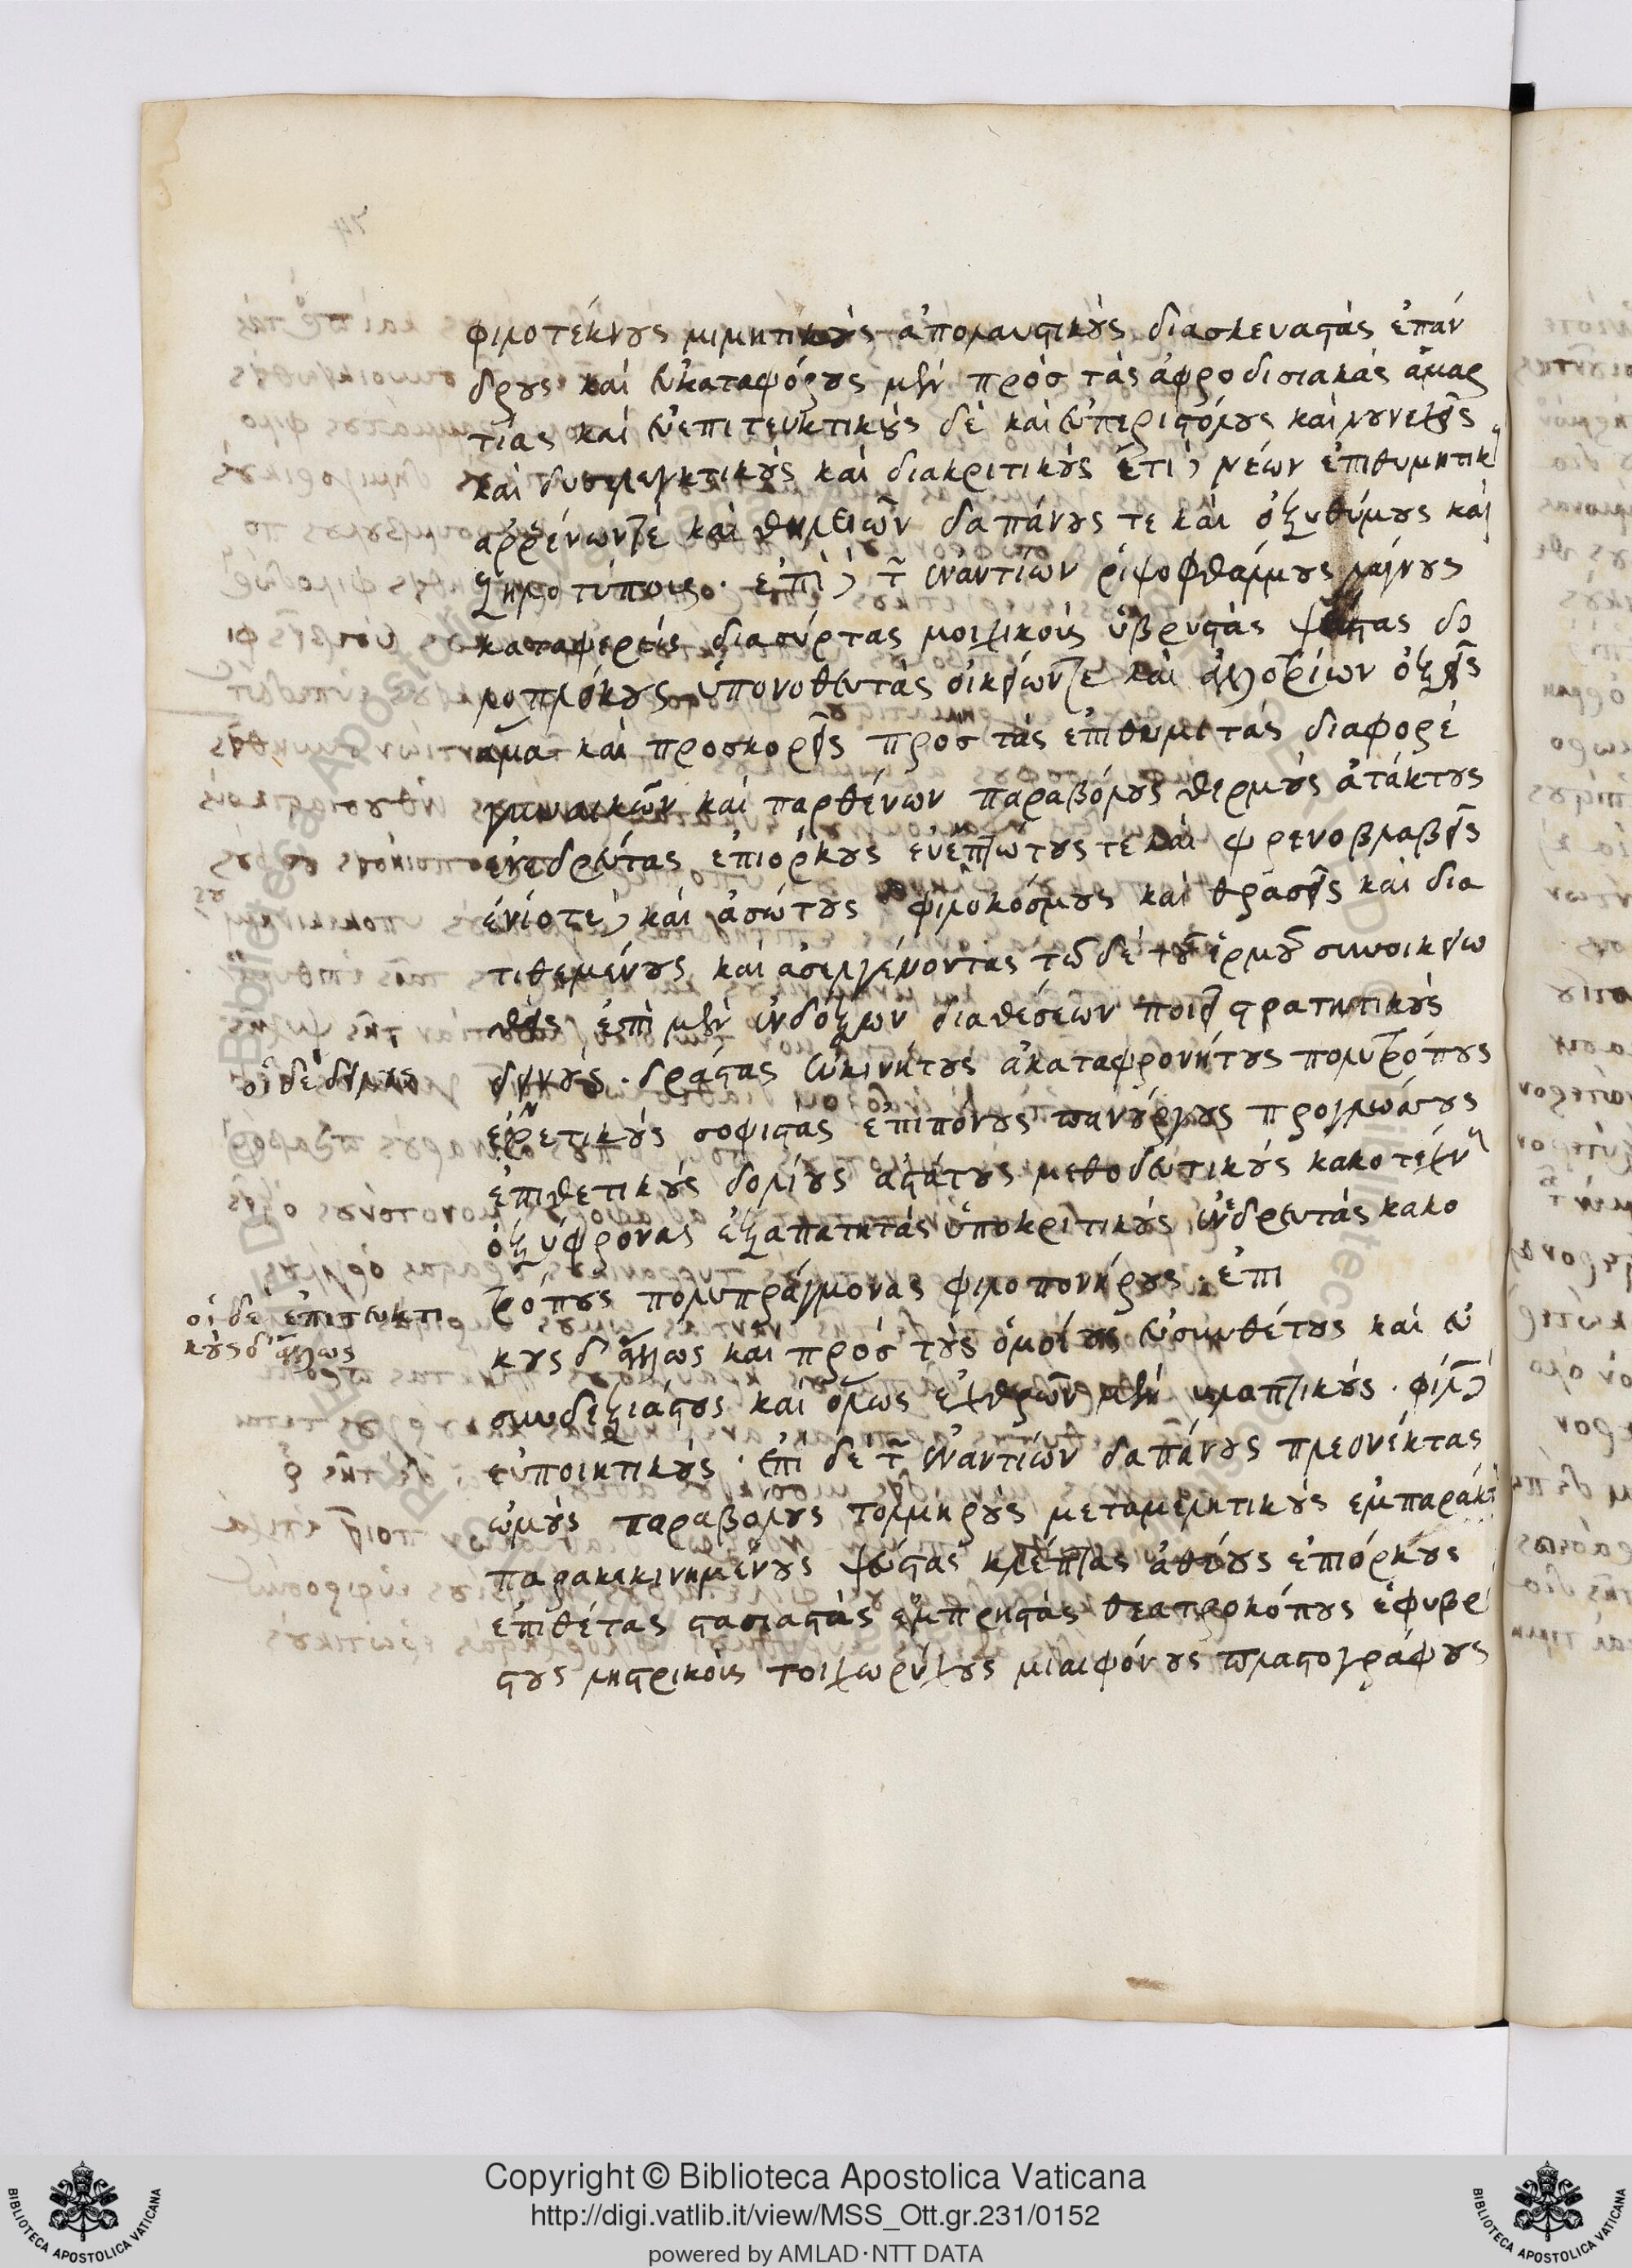 φιλοτέκνους μιμητικοὺς ἀπολαυστικοὺς διασκευαστὰς ἐπάν
δρους καὶ εὐκαταφόρους μὲν πρὸς τὰς ἀφροδισιακὰς ἁμαρ
τίας καὶ εὐεπιτευκτικοὺς δὲ καὶ εὐπεριστόλους καὶ νουνεχεῖς
καὶ δυσελεγκτικοὺς καὶ διακριτικοὺς ἔτι δὲ νέων ἐπιθυμητικοὺς
ἀρρένων τε καὶ θηλειῶν δαπάνους τε καὶ ὀξυθύμους καὶ
ζηλοτύπους. ἐπὶ δὲ τῶν ἐναντίων ῥιψοφθάλμους λάγνους
καταφερεῖς διασύρτας μοιχικοὺς ὑβρυστὰς ψεύστας δο
λοπλόκους ὑπονοθευτὰς οἰκείων τε καὶ ἀλλοτρίων ὀξεῖς
ἅμα καὶ προσκορεῖς πρὸς τὰς ἐπιθυμίας διαφορέ
γυναικῶν καὶ παρθένων παραβόλους θερμοὺς ἀτάκτους
ἐνεδρευτὰς ἐπιόρκους εὐεμπτώτους τε καὶ φρενοβλαβεῖς
ἐνίοτε δὲ καὶ ἀσώτους φιλοκόσμους καὶ θρασεῖς καὶ δια
τιθεμένους καὶ ἀσελγαίνοντας τῷ δὲ τοῦ ἑρμοῦ συνοικειω
θεὶς ἐπὶ μὲν ἐνδόξων διαθέσεων ποιεῖ στρατηγικοὺς
οἱ δὲ δεινοὺς
δεινοὺς. δράστας εὐκινήτους ἀκαταφρονήτους πολυτρόπους
εὑρετικοὺς σοφιστὰς ἐπιπόνους πανούργους προγλώσσους
ἐπιθετικοὺς δολίους ἀστάτους μεθοδευτικοὺς κακοτέχνους
ὀξύφρονας ἐξαπατητὰς ὑποκριτικοὺς ἐνεδρευτὰς κακο
τρόπους πολυπράγμονας φιλοπονήρους. ἐπι
οἱ δὲ ἐπιτευκτι
κοὺς δ' ἄλλως
κους δ' ἄλλως καὶ πρὸς τοὺς ὁμοίους εὐσυνθέτους καὶ εὐ
συνδεξιάστους καὶ ὅλως ἐχθρῶν μὲν βλαπτικοὺς. φίλων δὲ
εὐποιητικούς. ἐπὶ δὲ τῶν ἐναντίων δαπάνους πλεονέκτας
ὠμοὺς παραβόλους τολμηροὺς μεταμελητικοὺς ἐμπαράκτους
παρακεκινημένους ψεύστας κλέπτας ἀθέους ἐπιόρκους
ἐπιθέτας στασιαστὰς ἐμπρηστὰς θεατροκόπους ἐφυβρί
στους λῃστρικοὺς τοιχωρύχους μιαιφόνους πλαστογράφους
Copyright © Biblioteca Apostolica Vaticana
http://digi.vatlib.it/view/MSS_Ott.gr.231/0152
powered by AMLAD·NTT DATA
BIBLIOTECA APOSTOLICA VATICANA
BIBLIOTECA APOSTOLICA VATICANA